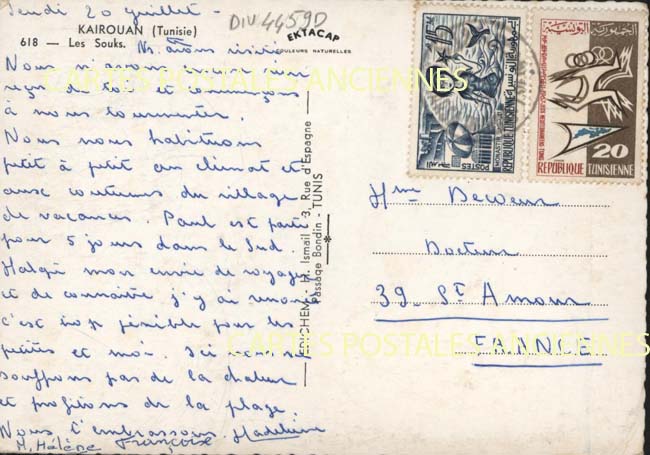 Jeudi 20 juillet -
KAIROUAN (Tunisie)
618 — Les Souks.
DIV 4459D
EKTACAP
COULEURS NATURELLES
Nous avons visité
Nous n'avons encore rien
reçu de toi et
à nous tourmenter.
Nous nous habituons
petit à petit au climat et
aux coutumes du village
de vacances. Paul est parti
pour 5 jours dans le Sud.
Malgré mon envie de voyager
et de connaître j'y ai renoncé
c'est trop pénible pour les
petites et moi. Ici on ne
souffrons pas de la chaleur
et profitons de la plage.
Nous t'embrassons Madeleine
M. Hélène Françoise
H. Ismail - 3, Rue d'Espagne -
Passage Bondin - TUNIS
15
POSTES
REPUBLIQUE TUNISIENNE
الجمهورية التونسية
REPUBLIQUE TUNISIENNE
20
Docteur
39 - St Amour
FRANCE
CARTES POSTALES ANCIENNES
CARTES POSTALES ANCIENNES